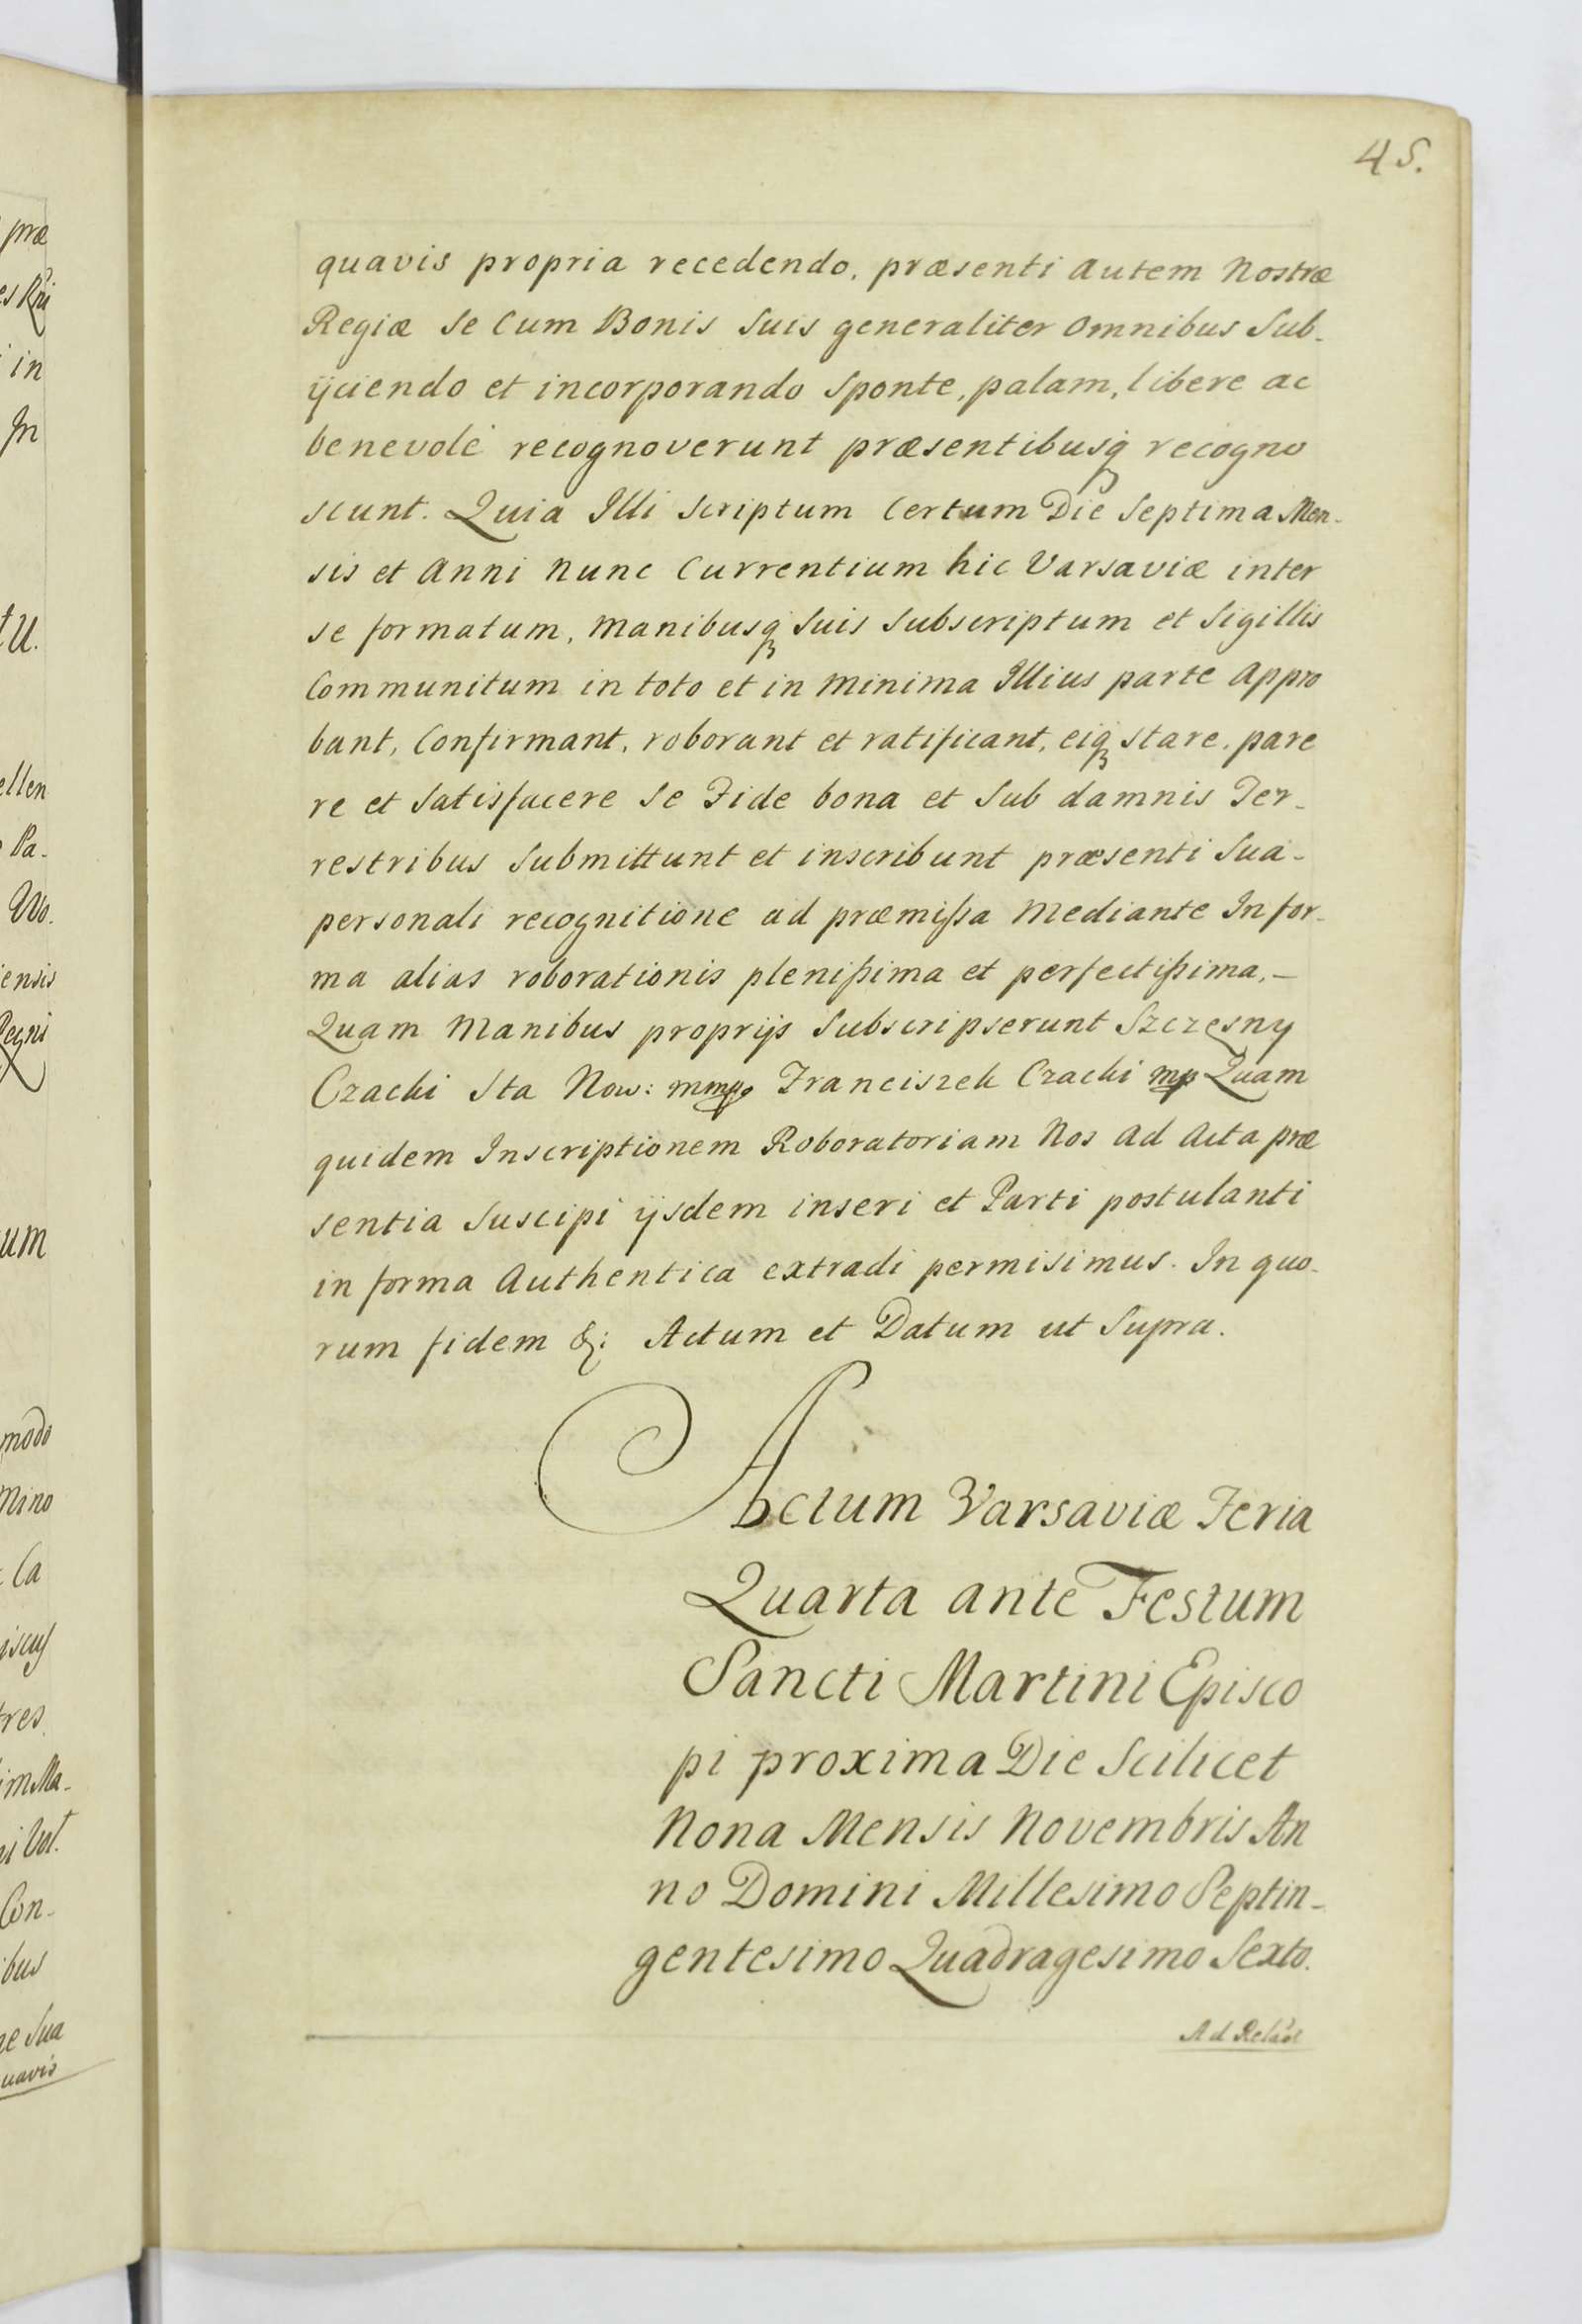 45.
quavis propria recedendo, præsenti autem Nostræ
Regiæ se cum Bonis suis generaliter omnibus sub-
ÿciendo et incorporando sponte, palam, libere ac
benevole recognoverunt præsentibusq recogno
scunt. Quia Illi scriptum certum Die Septima Men-
sis et Anni nunc currentium hic Varsaviæ inter
se formatum, manibusq suis subscriptum et sigillis
communitum in toto et in minima Illius parte appro
bant, confirmant, roborant et ratificant, eiq stare, pare
re et satisfacere se Fide bona et sub damnis Ter-
restribus submittunt et inscribunt præsenti sua-
personali recognitione ad præmißa mediante In for-
ma alias roborationis plenißima et perfectißima.-
Quam manibus proprÿs subscripserunt Szczęsny
Czacki Sta Now: mmp Franciszek Czacki mp Quam
quidem Inscriptionem Roboratoriam Nos ad Acta præ
sentia suscipi ÿsdem inseri et Parti postulanti
in forma Authentica extradi permisimus. In quo-
rum fidem &: Actum et Datum ut Supra.
Actum Varsaviæ Feria
Quarta ante Festum
Sancti Martini Episco
pi proxima Die Scilicet
Nona Mensis Novembris An
no Domini Millesimo Septin-
gentesimo Quadragesimo Sexto.
Ad
præ
in
In
tu.
ellen
Pa-
Wo.
iensis
Regni
um
modo
Mino
Ca
iscus
tres
im Ma-
Con-
ibus
ne Sua
uavis